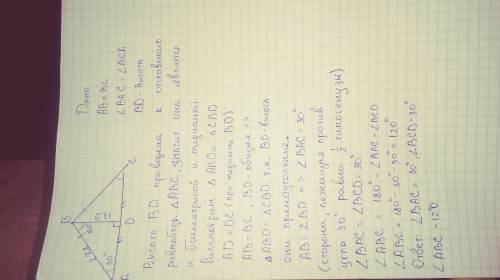 Дано
AB = BC
∠BAC = ∠BCA
BD - высота
B
60°
30°
A
D
C
Высота BD проведена к основанию
равнобедр. △ABC, значит она является
и биссектрисой и медианой
Рассмотрим △ABD и △CBD
AD = DC (при медиане BD)
AB = BC. BD - общие =>
△ABD = △CBD т.к. BD - высота
они прямоугольные.
AB = 2BD => ∠BAC = 30°
(сторона, лежащая против
угла 30° равна ½ гипотенузы)
∠BAC = ∠BCD = 30°
∠ABC = 180° - ∠BAC - ∠BCD
∠ABC = 180° - 30° - 30° = 120°
Ответ ∠BAC = 30°, ∠BCD = 30°
∠ABC = 120